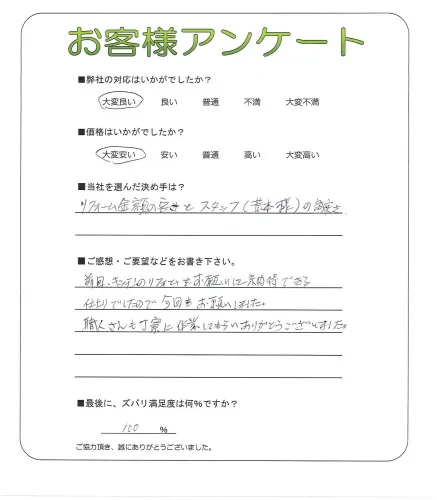 お客様アンケート
■弊社の対応はいかがでしたか?
大変良い 良い 普通 不満 大変不満
■価格はいかがでしたか?
大変安い 安い 普通 高い 大変高い
■当社を選んだ決め手は?
リフォーム金額の安さと スタッフ( 様)の誠実さ
■ご感想・ご要望などをお書き下さい。
前回、キッチンのリフォームをお願いし に納得できる
仕上りでしたので 今回もお願いしました。
職人さんも丁寧に作業してもらいありがとうございました。
■最後に、ズバリ満足度は何%ですか?
100 %
ご協力頂き、誠にありがとうございました。